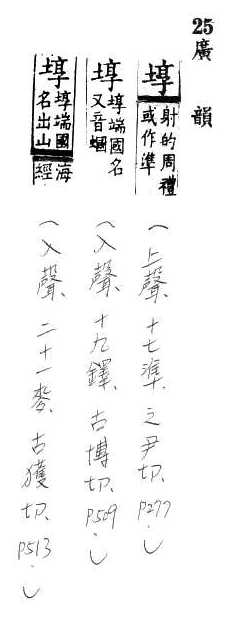 25 廣韻
埻 射的周禮或作準
(上聲、十七準、之尹切、P277.)
埻 埻端國名又音蟈
(入聲、十九鐸、古博切、P509.)
埻 埻端國名出山海經
(入聲、二十一麥、古獲切、P513.)